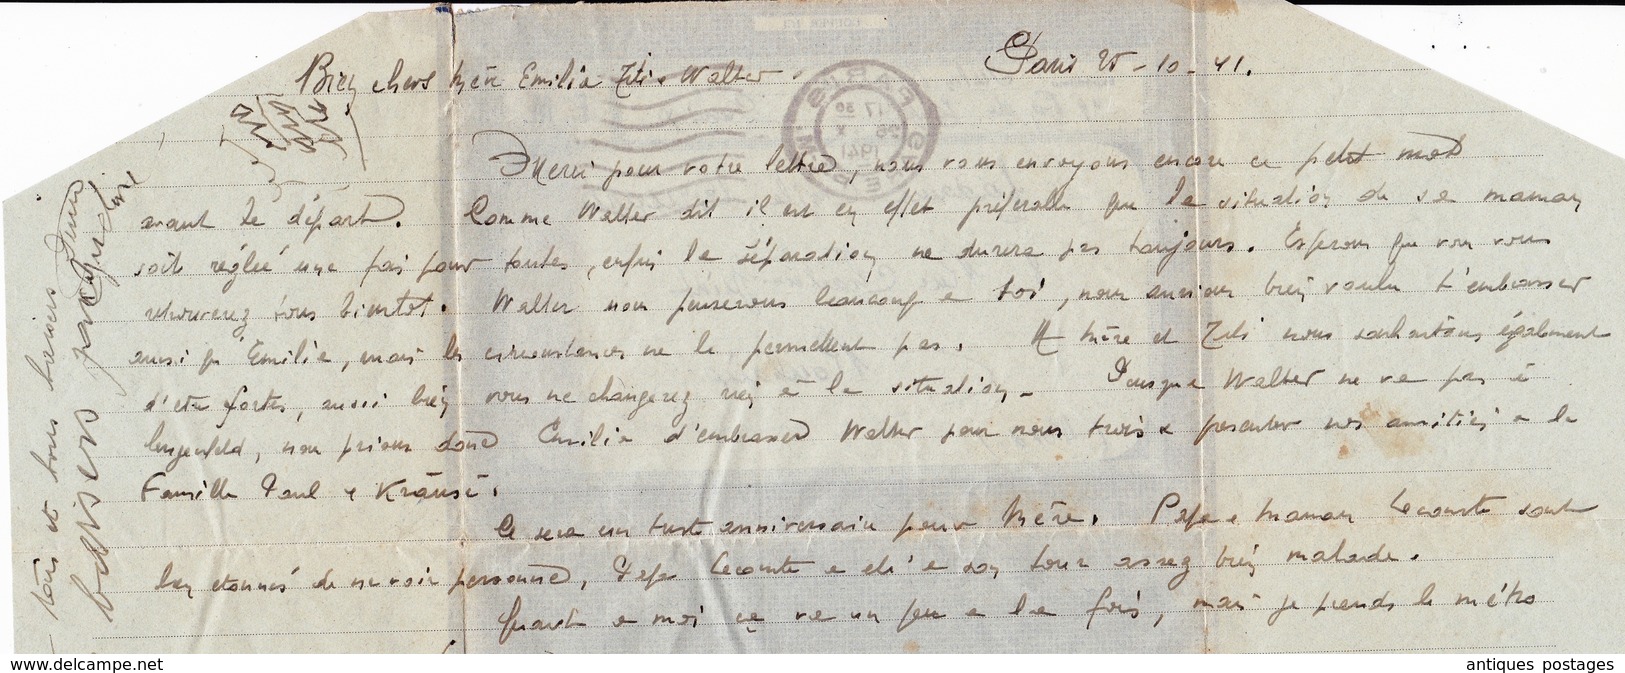 Paris 25-10-41.
Bien chers Mère Emilie Titi & Walter.
Merci pour votre lettre, nous vous envoyons encore ce petit mot
avant le départ. Comme Walter dit il est en effet préférable que la situation de sa maman
soit réglée une fois pour toutes, enfin la séparation ne durera pas toujours. Esperons que vous vous
retrouverez tous bientot. Walter nous penserons beaucoup a toi, nous aurions bien voulu t'embrasser
aussi qu'Emilie, mais les circonstances ne le permettent pas. A Mère et Titi nous souhaitons également
d'etre fortes, aussi bien vous ne changerez rien à la situation. Puisque Walter ne va pas à
lengenfeld, nous prions donc Emilie d'embrasser Walter pour nous trois & presenter nos amitiés a la
Famille Paul & Krause.
Ce sera un triste anniversaire pour Mère. Pepe & Maman Lecomte sont
bien etonnés de ne voir personne, Pepe Lecomte a été a son tour assez bien malade.
Quant a moi ça va un peu a la fois, mais je prends le métro
tous et tous baisers
baisers jacqueline
PARIS
17 30
26 X
1941
delcampe.net
antiques postages